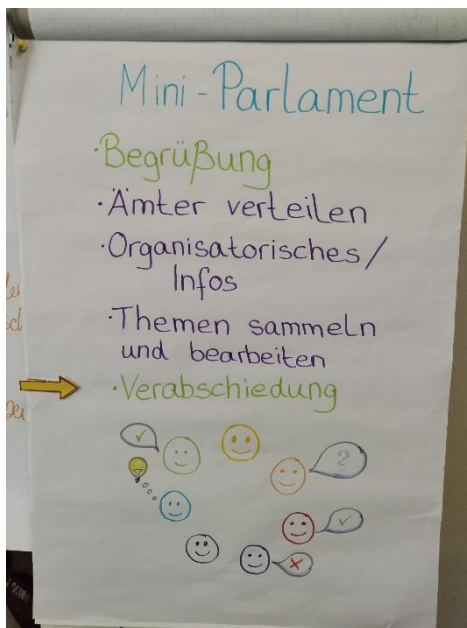 Mini-Parlament
·Begrüßung
·Ämter verteilen
·Organisatorisches/
Infos
·Themen sammeln
und bearbeiten
·Verabschiedung
?